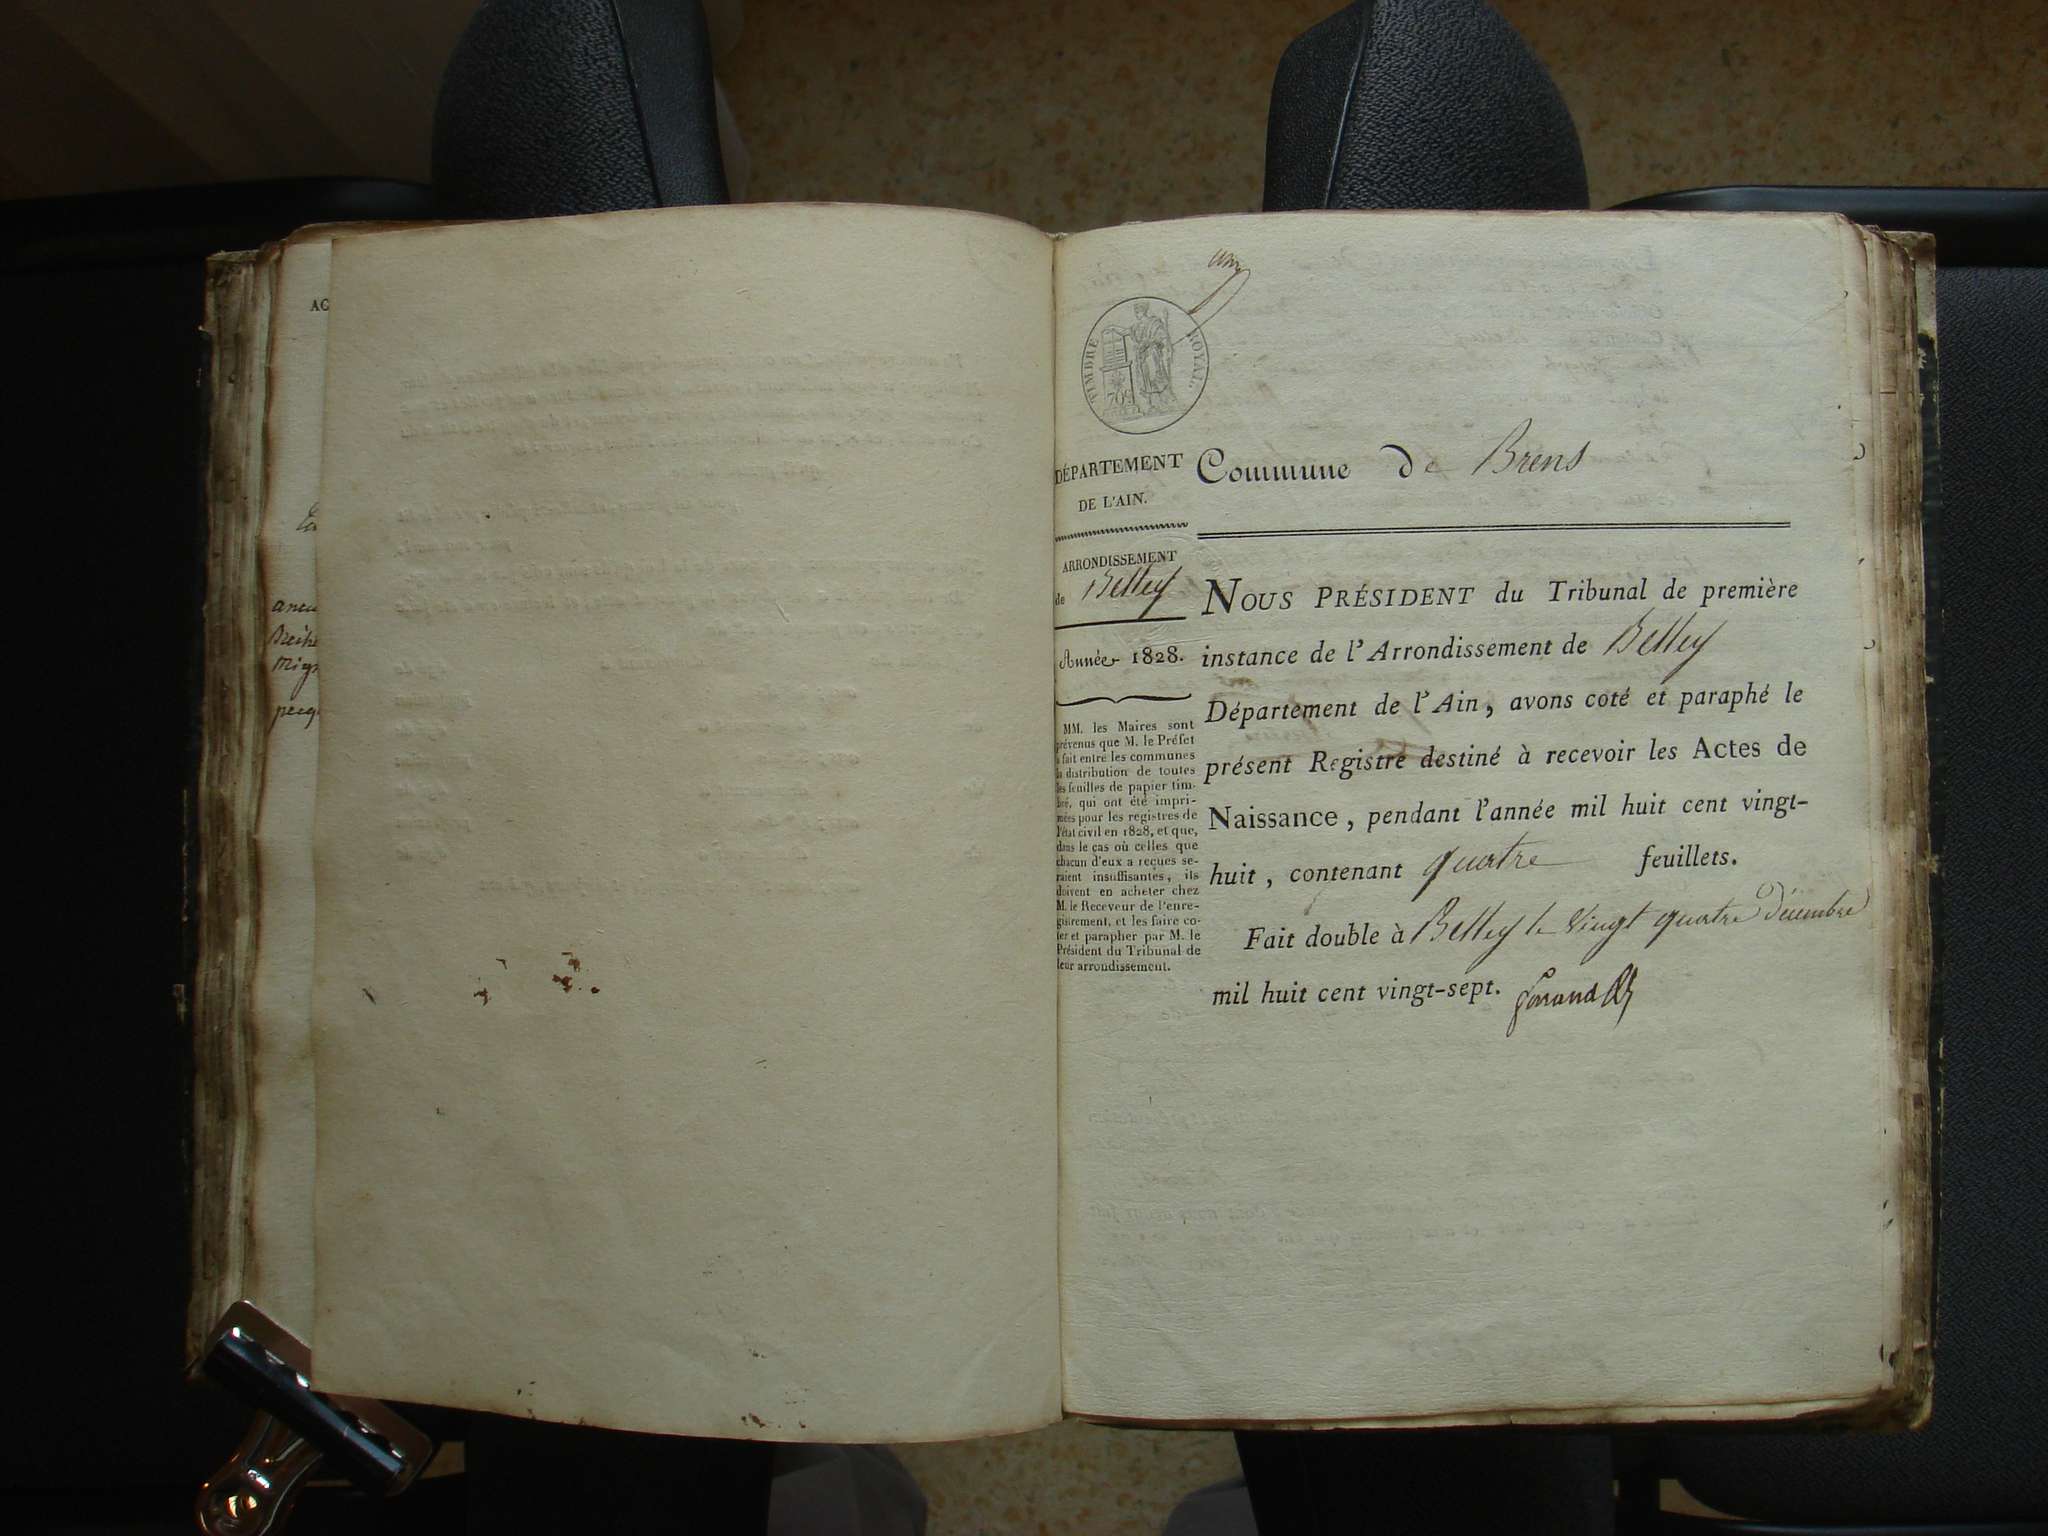 AC
aneu
Mign
un
TIMBRE ROYAL
DÉPARTEMENT
DE L'AIN.
ARRONDISSEMENT
de Belley
Année 1828.
MM. les Maires sont
prévenus que M. le Préfet
a fait entre les communes
la distribution de toutes
les feuilles de papier tim-
bré, qui ont été impri-
mées pour les registres de
l'état civil en 1828, et que,
dans le cas où celles que
chacun d'eux a reçues se-
raient insuffisantes, ils
doivent en acheter chez
M. le Receveur de l'enre-
gistrement, et les faire co-
ter et parapher par M. le
Président du Tribunal de
leur arrondissement.
Commune de Brens
NOUS PRÉSIDENT du Tribunal de première
instance de l'Arrondissement de Belley
Département de l'Ain, avons coté et paraphé le
présent Registre destiné à recevoir les Actes de
Naissance, pendant l'année mil huit cent vingt-
huit, contenant quatre feuillets.
Fait double à Belley le vingt quatre décembre
mil huit cent vingt-sept.